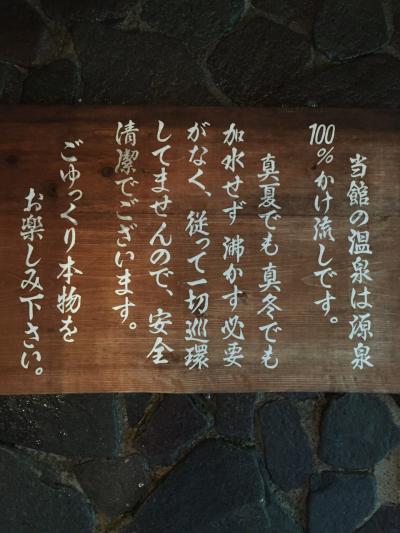 当館の温泉は源泉
100%かけ流しです。
真夏でも真冬でも
加水せず沸かす必要
がなく、従って一切巡環
してませんので、安全
清潔でございます。
ごゆっくり本物を
お楽しみ下さい。